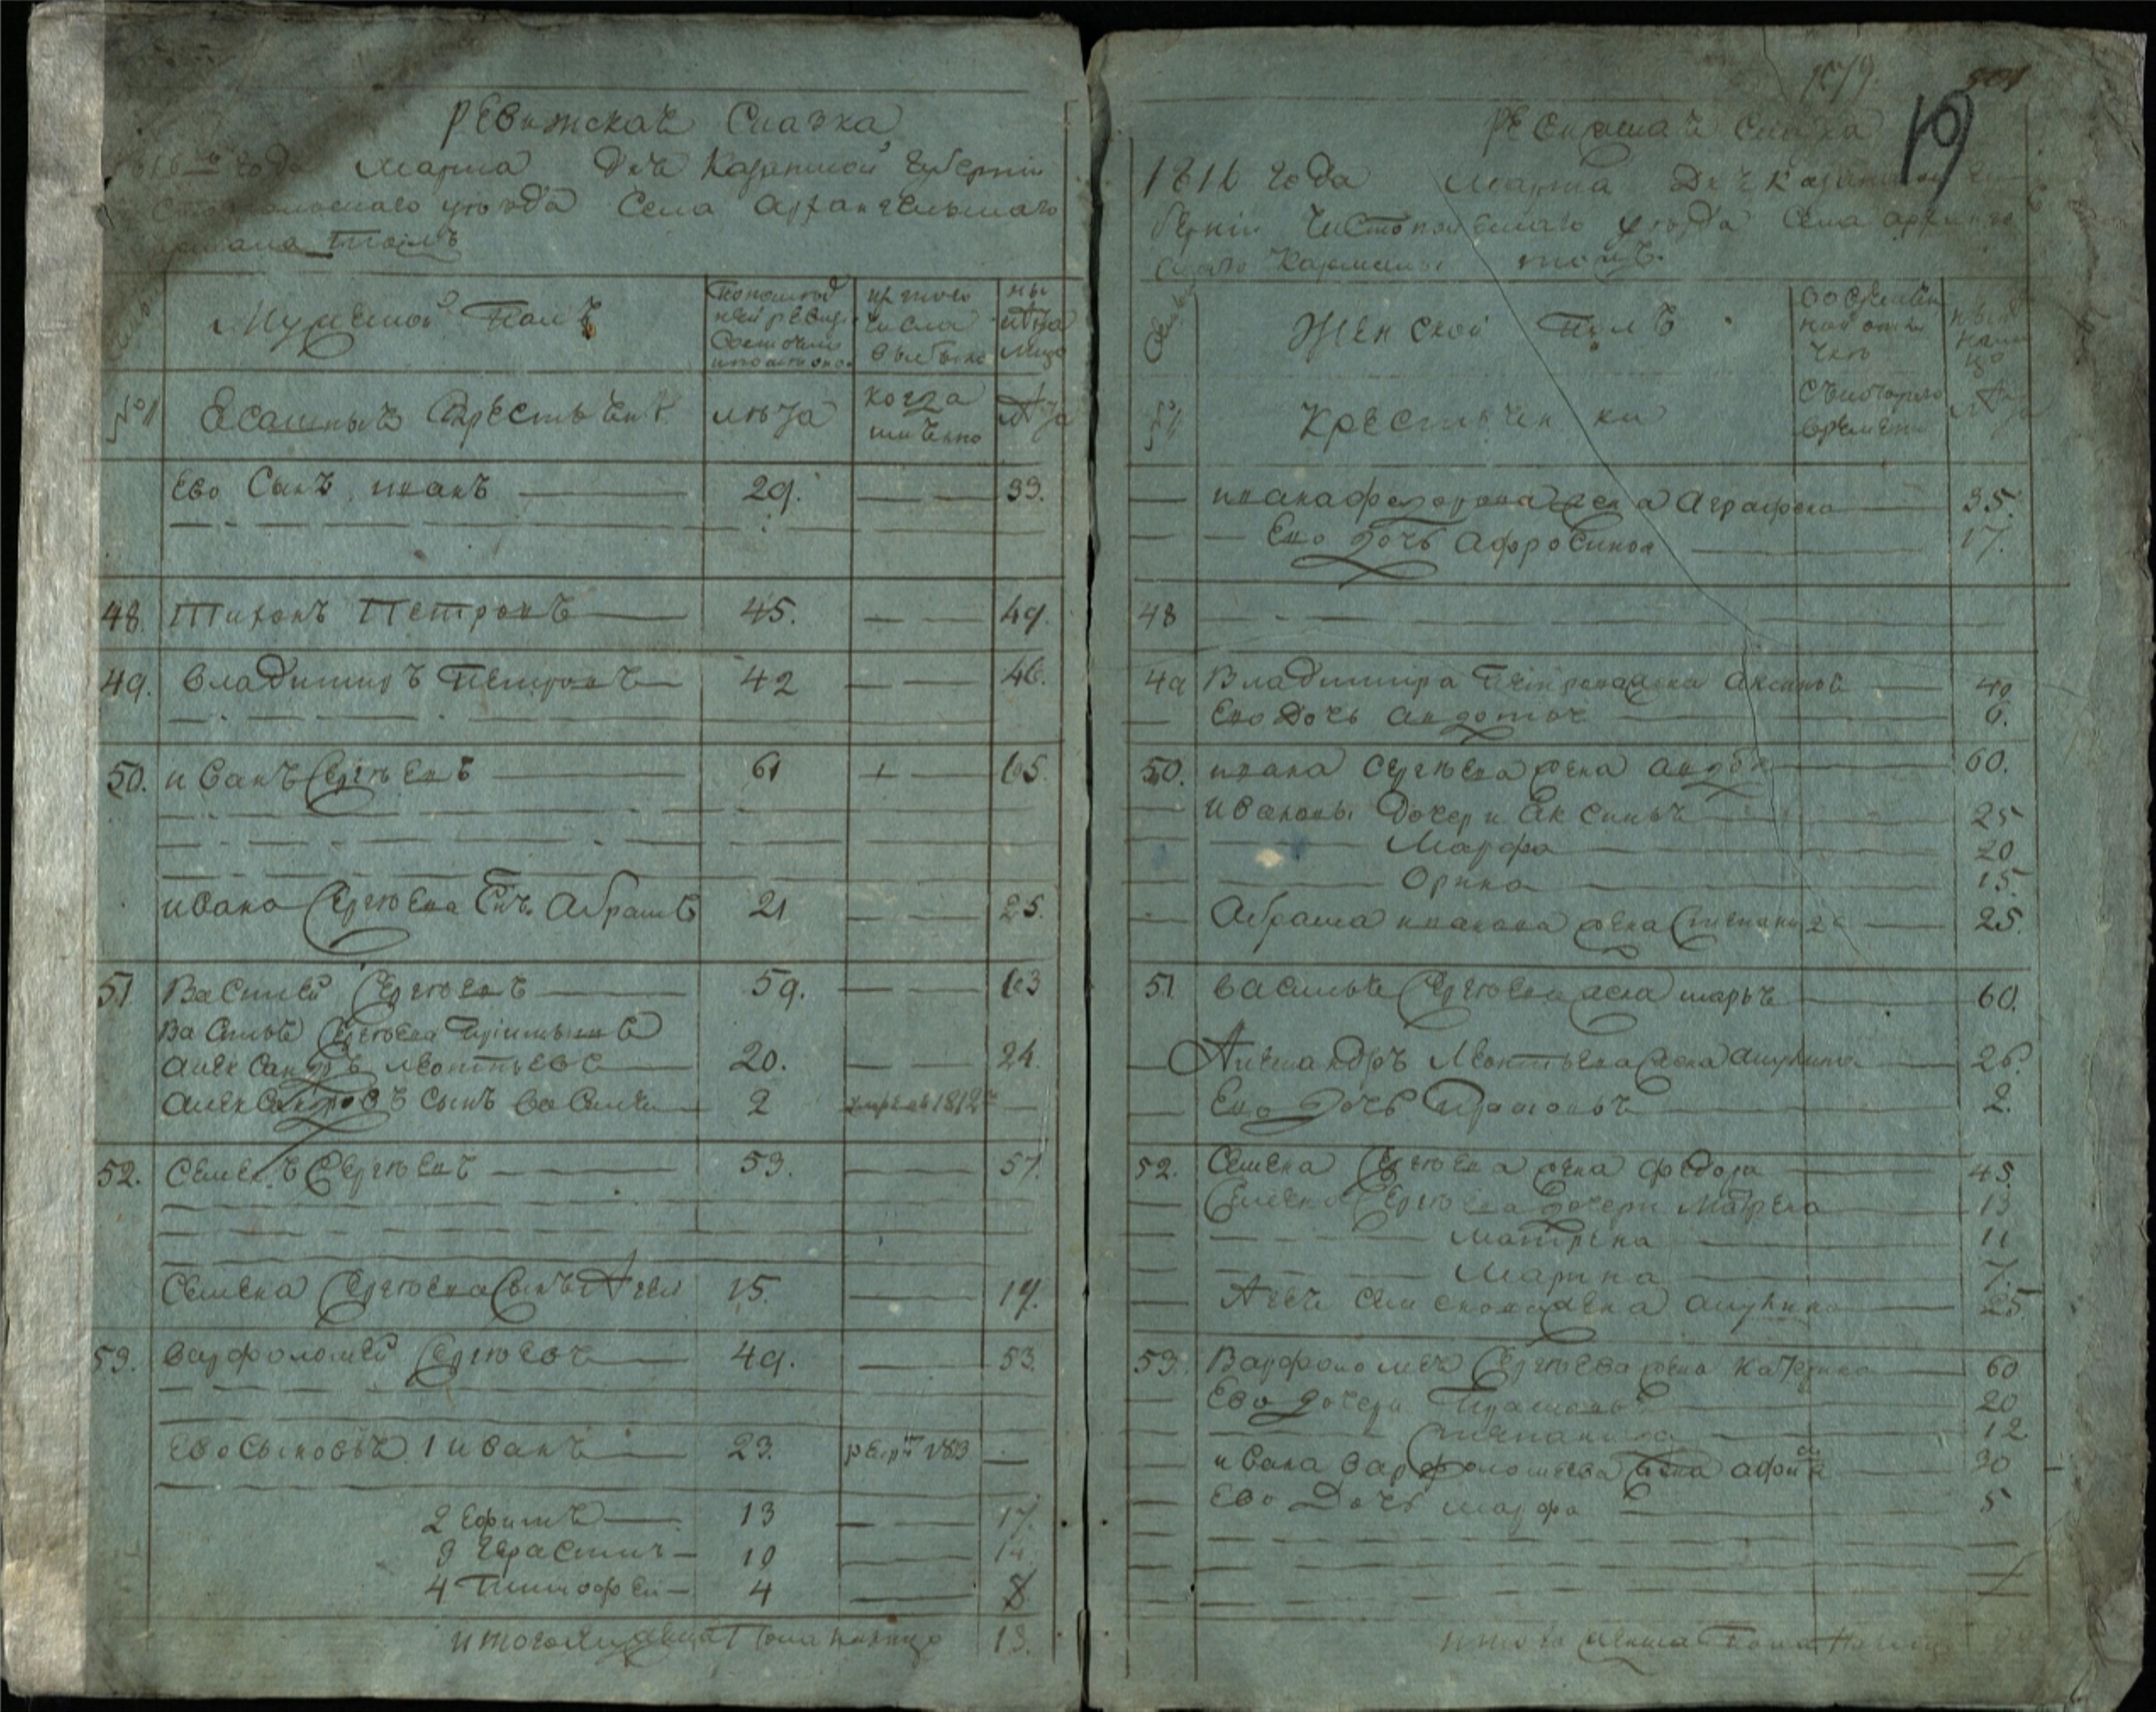 Ревижская Сказка
1816го года Марта Дня Казанской губернии
Чистопольскаго уѣзда Села Архангельскаго
тожъ
Мужеской Полъ
По последней ревизии состояло и после оного
ис того числа выбыло
ны
Ясашныя Крестьяня
лѣта
когда имянно
лѣта
Ево Сынъ иванъ 29. 33.
48. Тихонъ Петровъ 45. 49.
49. владимиръ Петровъ 42 46.
50. иванъ Сергѣевъ 61 65.
ивана Сергѣева Снъ Абрамъ 21 25.
51 Василей Сергѣевъ 59. 63
Василья Сергѣева
александръ леонтьевъ 20. 24.
александровъ сынъ василей 2 умре въ 1812г
52. Семенъ Сергѣевъ 53. 57.
Семена Сергѣева Сынъ Агей 15. 19.
53. варфоломей Сергѣевъ 49. 53.
ево Сыновья 1 иванъ 23. рекр 1813
2 Ефимъ 13 17.
3 Герасимъ 10 14.
4 Тимофей 4 8
итого мужеска Пола налицо 13.
10
Ревижская Сказка
1816 года Марта Дня Казанской гу
берніи Чистопольскаго уѣзда Села арханге
льскаго тожъ.
Женской Полъ
во временной отлучке
ныне налицо
Крестьянки
съ которого времени
лѣта
ивана федорова жена Аграфена 35.
Ево дочь Афросинья 17.
48
49 Владимира Петрова жена Аксинья 40
Ево Дочь авдотья 6.
50. ивана Сергѣева жена авдотья 60.
ивановы Дочери Аксинья 25
Марфа 20
Орина 15.
Абрама иванова жена Степанида 25.
51 василья Сергѣева жена марья 60.
Александръ Леонтьева жена акулина 26.
Ево Дочь Прасковья 2.
52. Семена Сергѣева жена федора 45.
Семена Сергѣева дочери Матрена 13
Матрена 11
Марина 7.
Агея Семенова жена акулина 25
53. Варфоломея Сергѣева жена Катерина 60
Ево дочери Прасковья 20
Степанида 12
ивана варфоломеева жена 30
Ево Дочь марфа 5
итого женска Пола налицо